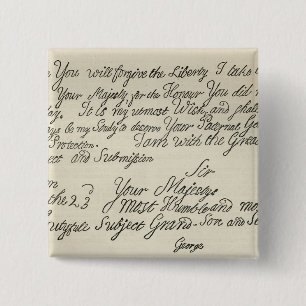 You will forgive the Liberty I take
Your Majesty, for the Honour You did
day. It is my utmost Wish, and shall
be my Study to deserve Your Paternal
Protection. I am with the Great
and Submission
Sir
Your Majestys
the 23d most Humble and
Subject Grand-Son and
George